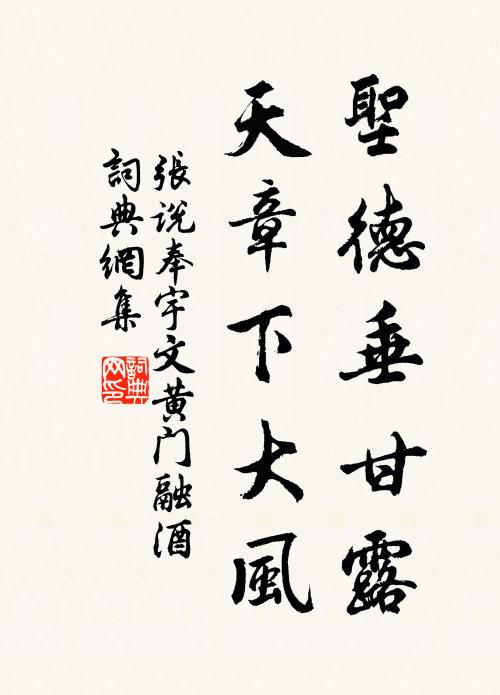 聖德垂甘露
天章下大風
張说奉宇文黄门融酒
詞典網集
詞典网印